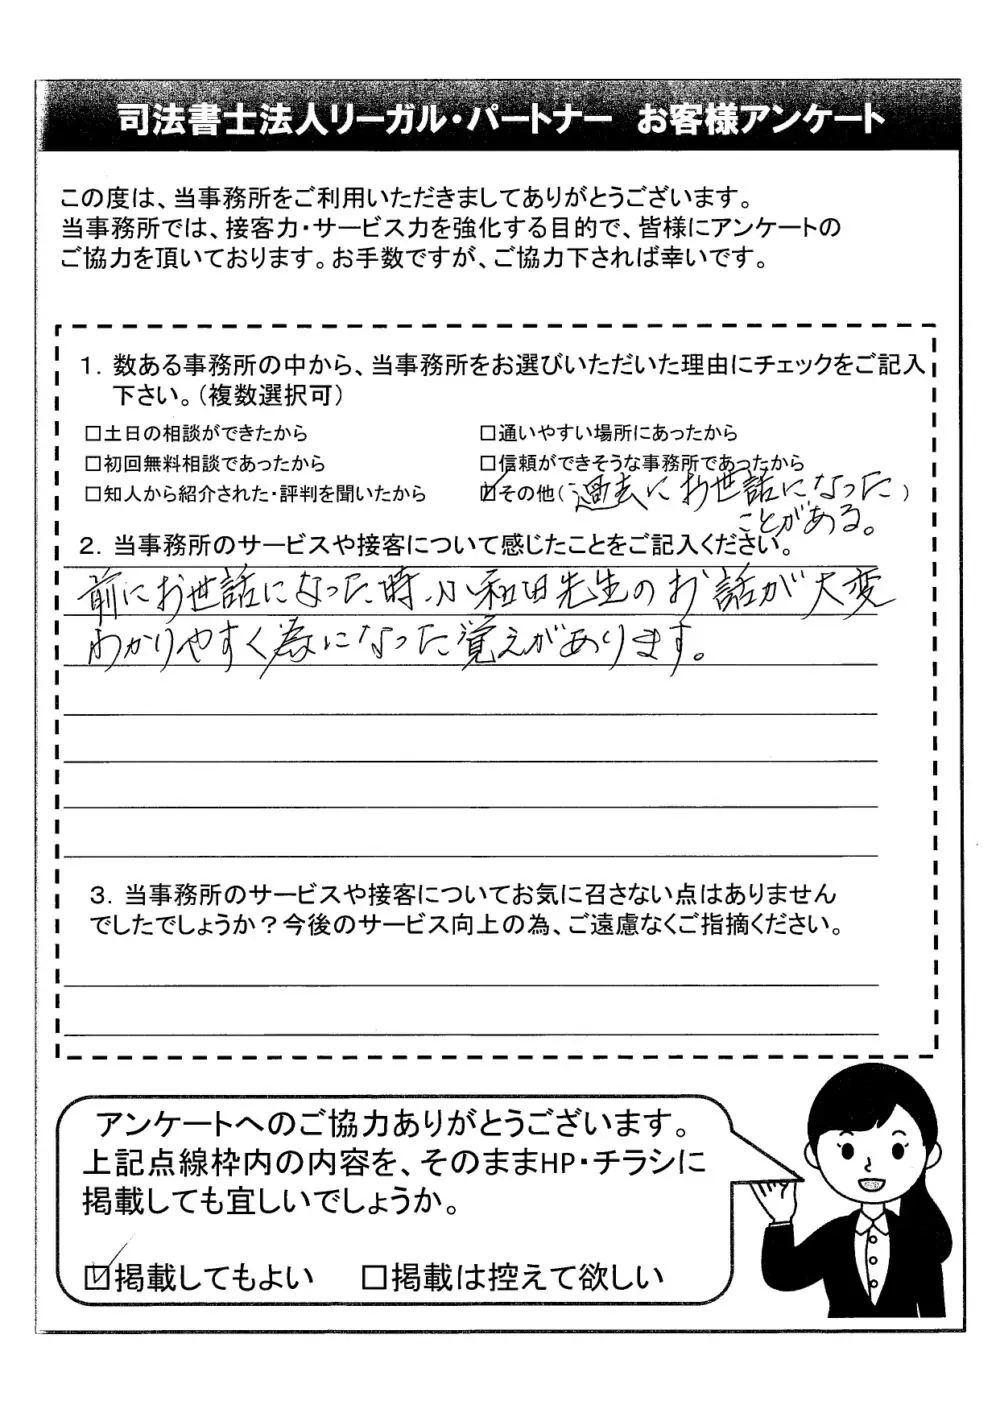 司法書士法人リーガル・パートナー　お客様アンケート
この度は、当事務所をご利用いただきましてありがとうございます。
当事務所では、接客力・サービス力を強化する目的で、皆様にアンケートの
ご協力を頂いております。お手数ですが、ご協力下されば幸いです。
1．数ある事務所の中から、当事務所をお選びいただいた理由にチェックをご記入
下さい。（複数選択可）
□土日の相談ができたから　□通いやすい場所にあったから
□初回無料相談であったから　□信頼ができそうな事務所であったから
□知人から紹介された・評判を聞いたから　☑その他（過去にお世話になった）
ことがある。
2．当事務所のサービスや接客について感じたことをご記入ください。
前にお世話になった時、小和田先生のお話が大変
わかりやすく為になった覚えがあります。
3．当事務所のサービスや接客についてお気に召さない点はありません
でしたでしょうか？今後のサービス向上の為、ご遠慮なくご指摘ください。
アンケートへのご協力ありがとうございます。
上記点線枠内の内容を、そのままHP・チラシに
掲載しても宜しいでしょうか。
☑掲載してもよい　□掲載は控えて欲しい